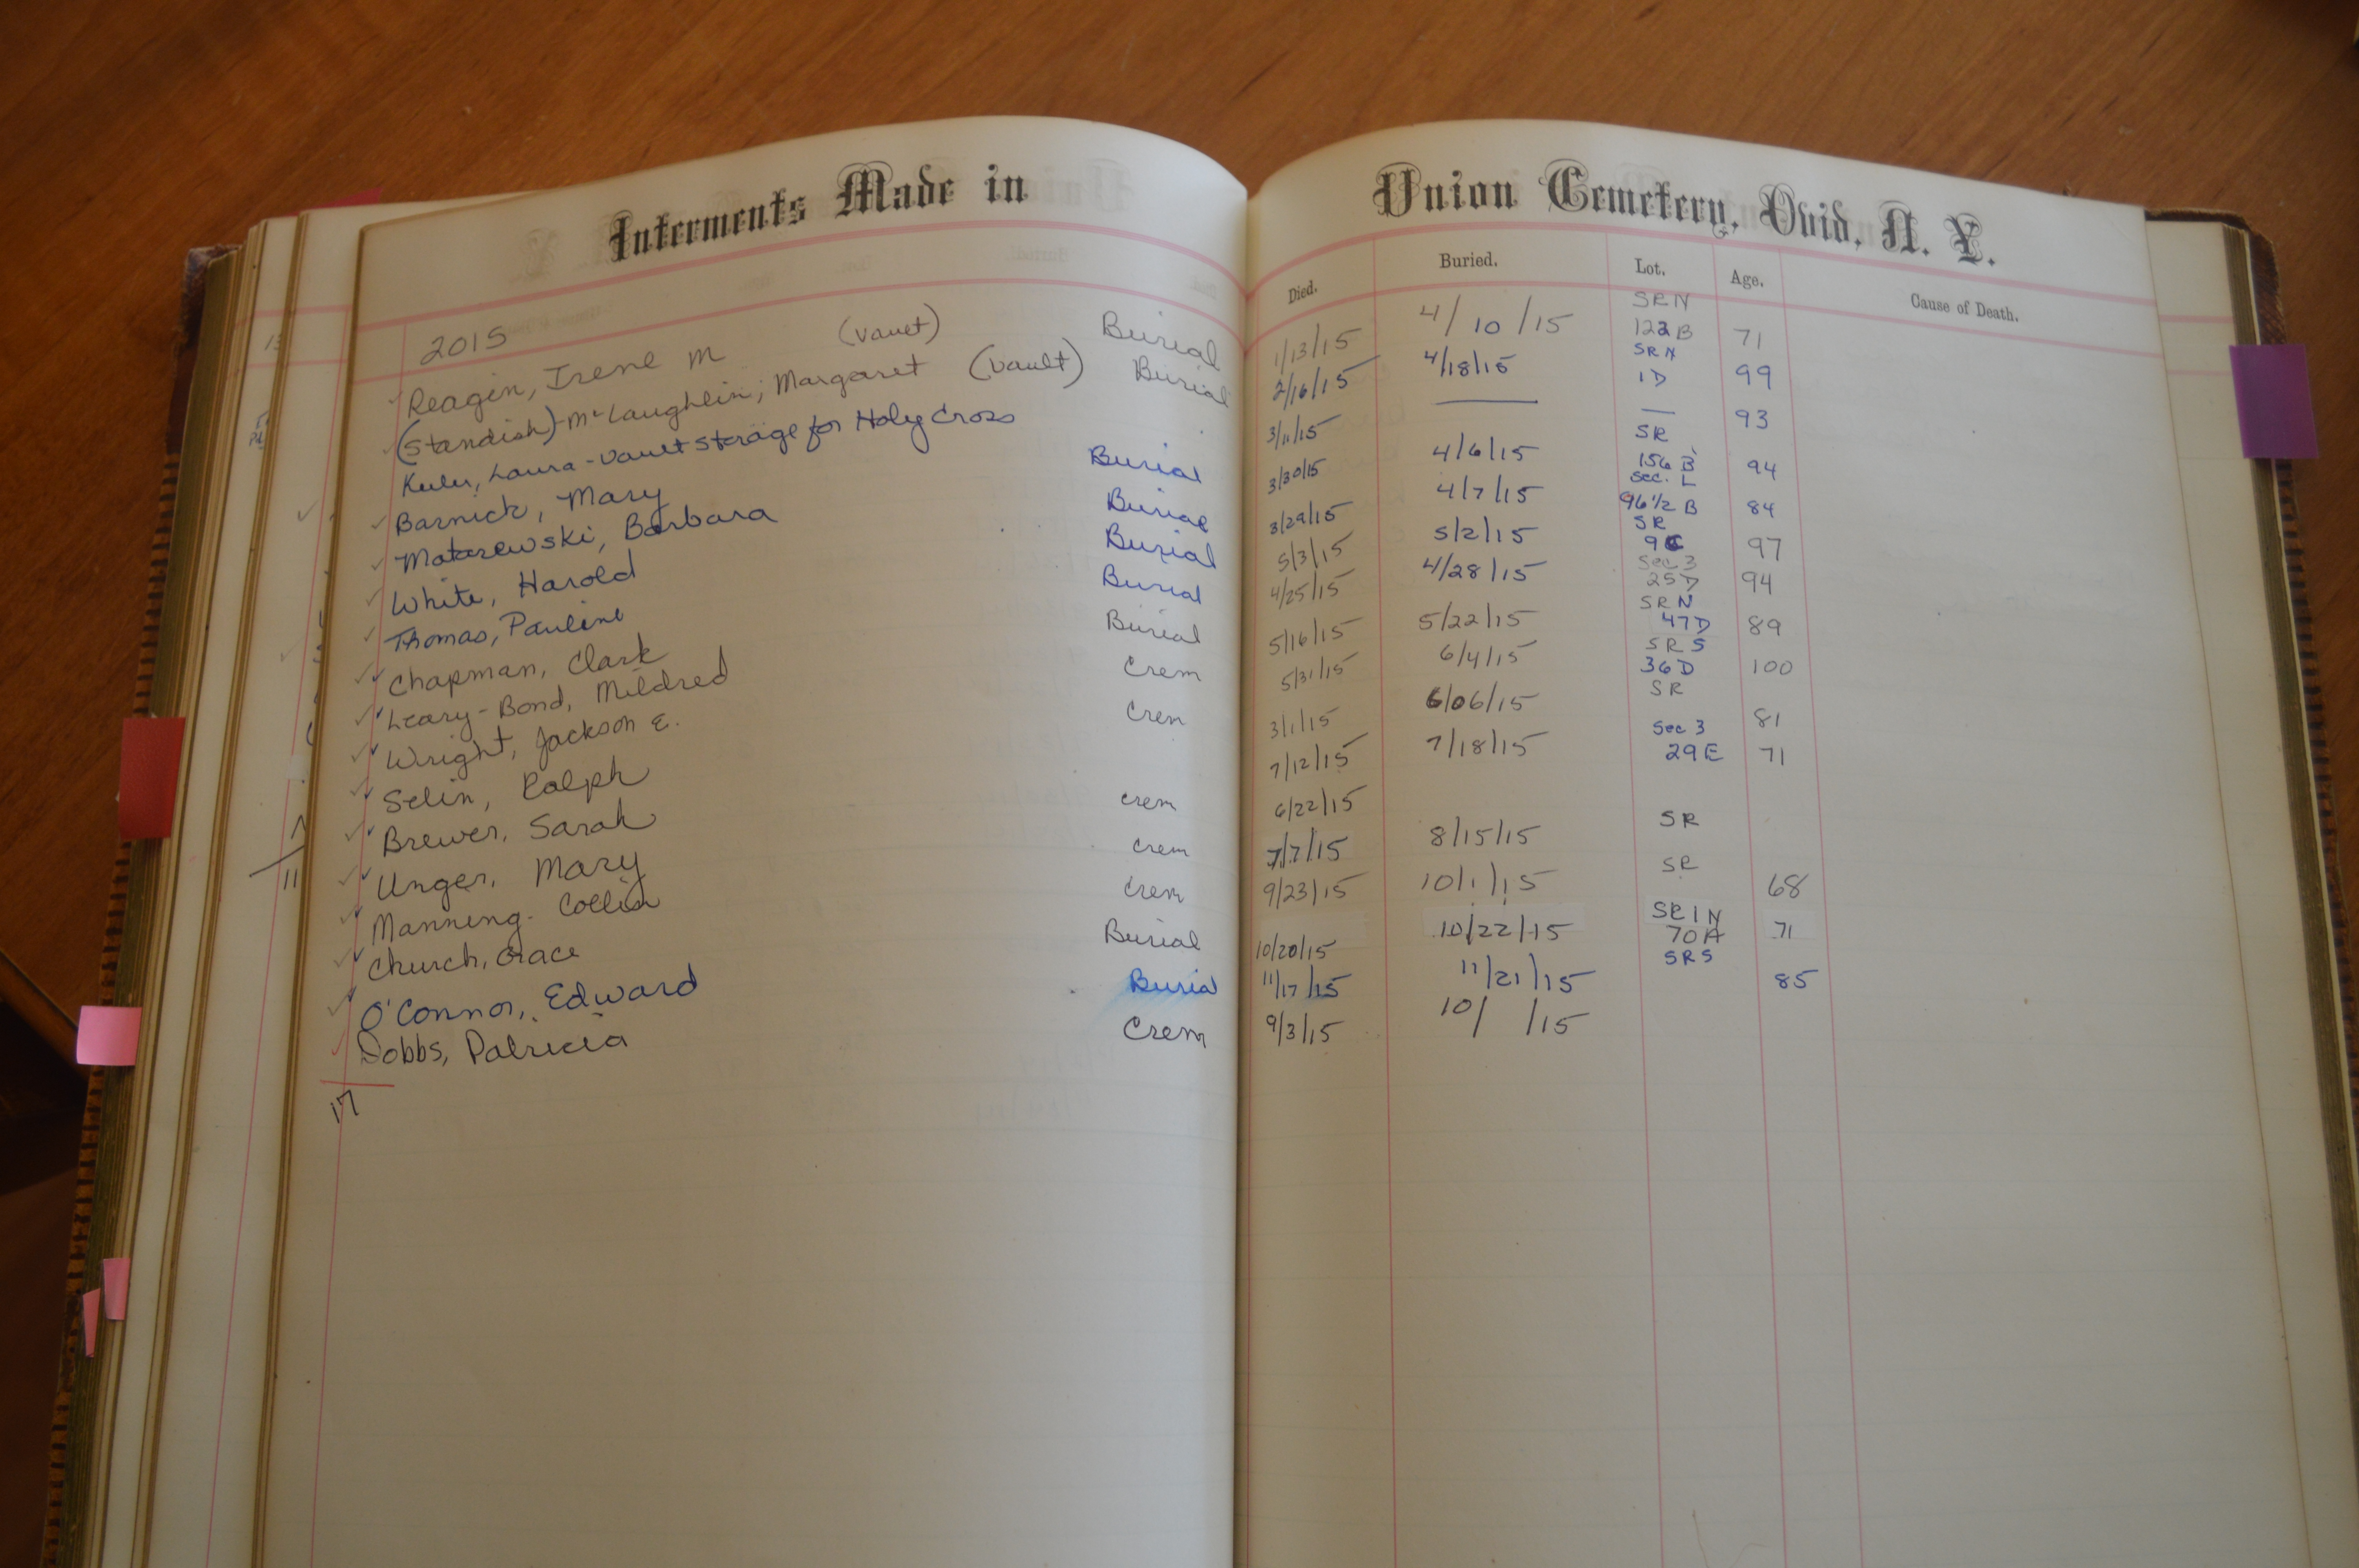 Interments Made in Union Cemetery, Ovid, N. Y.
Died. Buried. Lot. Age. Cause of Death.
2015
Reagin, Irene M (vault) Burial 1/13/15 4/10/15 SRN 122B 71
(Standish)-McLaughlin, Margaret (vault) Burial 2/16/15 4/18/15 SRN 1D 99
Laura - vault storage for Holy Cross 3/11/15 — — 93
Barnick, Mary Burial 3/30/15 4/6/15 SR 156 B 94
Matarewski, Barbara Burial 3/29/15 4/7/15 Sec. L 96 1/2 B 84
White, Harold Burial 5/3/15 5/2/15 SR 9C 97
Thomas, Pauline Burial 4/25/15 4/28/15 Sec 3 25D 94
Chapman, Clark Burial 5/16/15 5/22/15 SRN 47D 89
Leary-Bond, Mildred Crem 5/31/15 6/4/15 SRS 36D 100
Wright, Jackson E. Crem 3/1/15 6/06/15 SR 81
Selin, Ralph 7/12/15 7/18/15 Sec 3 29E 71
Brewer, Sarah crem 6/22/15
Unger, Mary crem 7/7/15 8/15/15 SR
Manning. Collin Crem 9/23/15 10/1/15 SR 68
Church, Grace Burial 10/20/15 10/22/15 SR1N 70A 71
O'Connor, Edward Burial 11/17/15 11/21/15 SRS 85
Dobbs, Patricia Crem 9/3/15 10/ /15
17
11